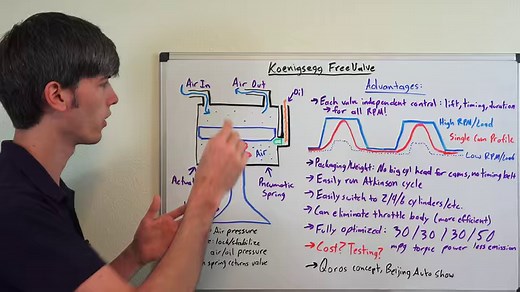 Koenigsegg FreeValve
Air In
Air Out
Oil
Air
Pneumatic
Spring
Air pressure
lock/stabilize
air/oil pressure
spring returns valve
Advantages:
→ Each valve independent control: lift, timing, duration
→ for all RPM!
High RPM/Load
Single Cam Profile
Low RPM/Load
→ Packaging/Weight: No big cyl head for cams, no timing belt
→ Easily run Atkinson cycle
→ Easily switch to 2/4/6 cylinders/etc.
→ Can eliminate throttle body (more efficient)
→ Fully optimized: 30/30/30/50
mpg torque power less emission
→ Cost? Testing?
→ Qoros concept, Beijing Auto show